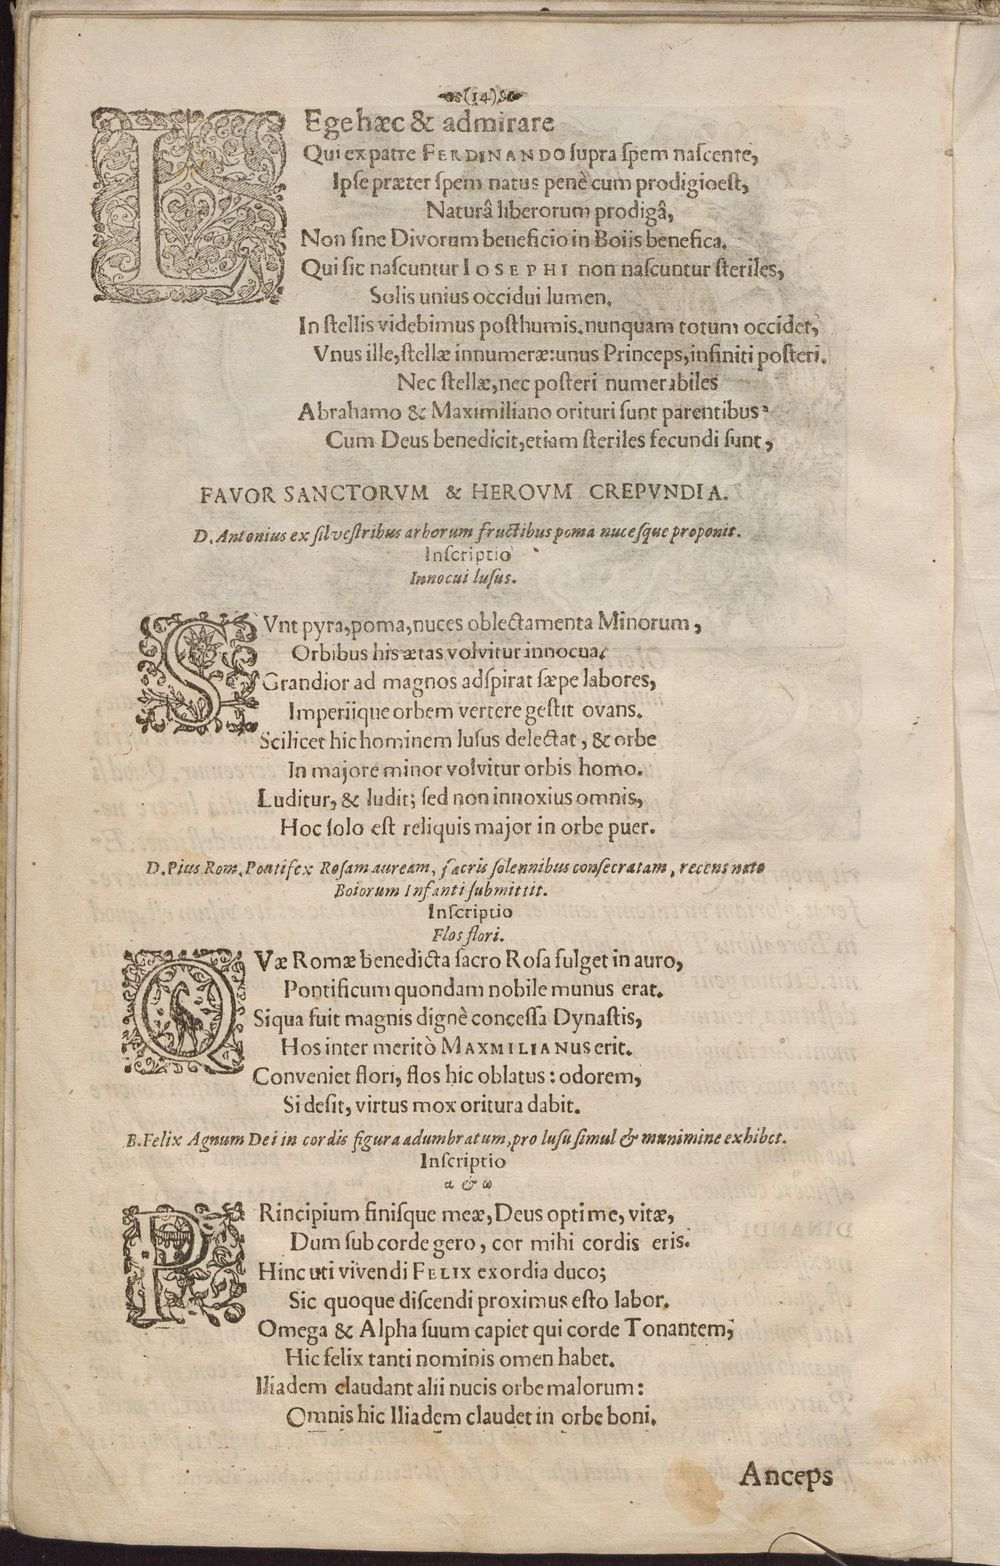 (14)
LEge hæc & admirare
Qui ex patre FERDINANDO supra spem nascente,
Ipse præter spem natus penè cum prodigio est,
Naturâ liberorum prodigâ,
Non sine Divorum beneficio in Boiis benefica.
Qui sic nascuntur IOSEPHI non nascuntur steriles,
Solis unius occidui lumen,
In stellis videbimus posthumis. nunquam totum occidet,
Vnus ille, stellæ innumeræ: unus Princeps, infiniti posteri.
Nec stellæ, nec posteri numerabiles
Abrahamo & Maximiliano orituri sunt parentibus,
Cum Deus benedicit, etiam steriles fecundi sunt,
FAVOR SANCTORVM & HEROVM CREPVNDIA.
D. Antonius ex silvestribus arborum fructibus poma nucesque proponit.
Inscriptio
Innocui lusus.
SVnt pyra, poma, nuces oblectamenta Minorum,
Orbibus his ætas volvitur innocua.
Grandior ad magnos adspirat sæpe labores,
Imperiique orbem vertere gestit ovans.
Scilicet hic hominem lusus delectat, & orbe
In majore minor volvitur orbis homo.
Luditur, & ludit; sed non innoxius omnis,
Hoc solo est reliquis major in orbe puer.
D. Pius Rom. Pontifex Rosam auream, sacris solennibus consecratam, recens nato
Boiorum Infanti submittit.
Inscriptio
Flos flori.
QVæ Romæ benedicta sacro Rosa fulget in auro,
Pontificum quondam nobile munus erat.
Siqua fuit magnis dignè concessa Dynastis,
Hos inter meritò MAXMILIANus erit.
Conveniet flori, flos hic oblatus: odorem,
Si desit, virtus mox oritura dabit.
B. Felix Agnum Dei in cordis figura adumbratum, pro lusu simul & munimine exhibet.
Inscriptio
α & ω
PRincipium finisque meæ, Deus optime, vitæ,
Dum sub corde gero, cor mihi cordis eris.
Hinc uti vivendi FELIX exordia duco;
Sic quoque discendi proximus esto labor.
Omega & Alpha suum capiet qui corde Tonantem;
Hic felix tanti nominis omen habet.
Iliadem claudant alii nucis orbe malorum:
Omnis hic Iliadem claudet in orbe boni.
Anceps